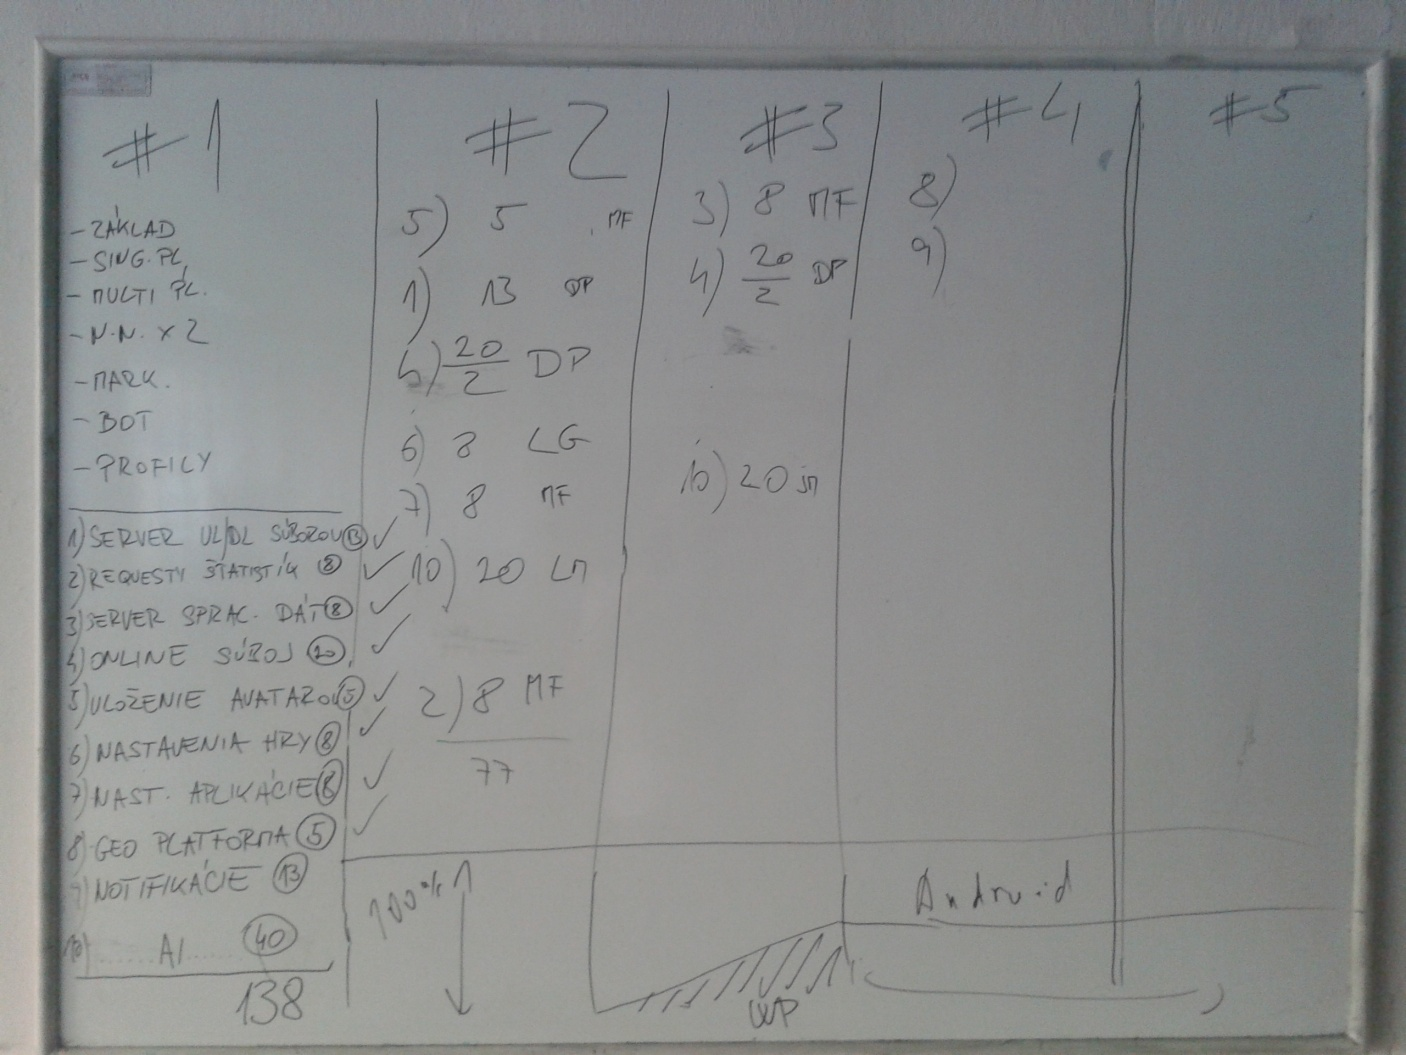 #1
- ZÁKLAD
- SING. PL.
- MULTI PL.
- N.N. x 2
- MARK.
- BOT
- PROFILY
1) SERVER UL/DL SÚBOROV 13 ✓
2) REQUESTY ŠTATISTÍK 8 ✓
3) SERVER SPRAC. DÁT 8 ✓
4) ONLINE SÚBOJ 20 ✓
5) ULOŽENIE AVATAROV 5 ✓
6) NASTAVENIA HRY 8 ✓
7) NAST. APLIKÁCIE 8 ✓
8) GEO PLATFORMA 5 ✓
9) NOTIFIKÁCIE 13
10) ...... AI ...... 40
138
#2
5) 5 MF
1) 13 DP
4) 20/2 DP
6) 8 LG
7) 8 MF
10) 20 LM
2) 8 MF
77
100%
#3
3) 8 MF
4) 20/2 DP
10) 20 JM
WP
#4
8)
9)
Android
#5